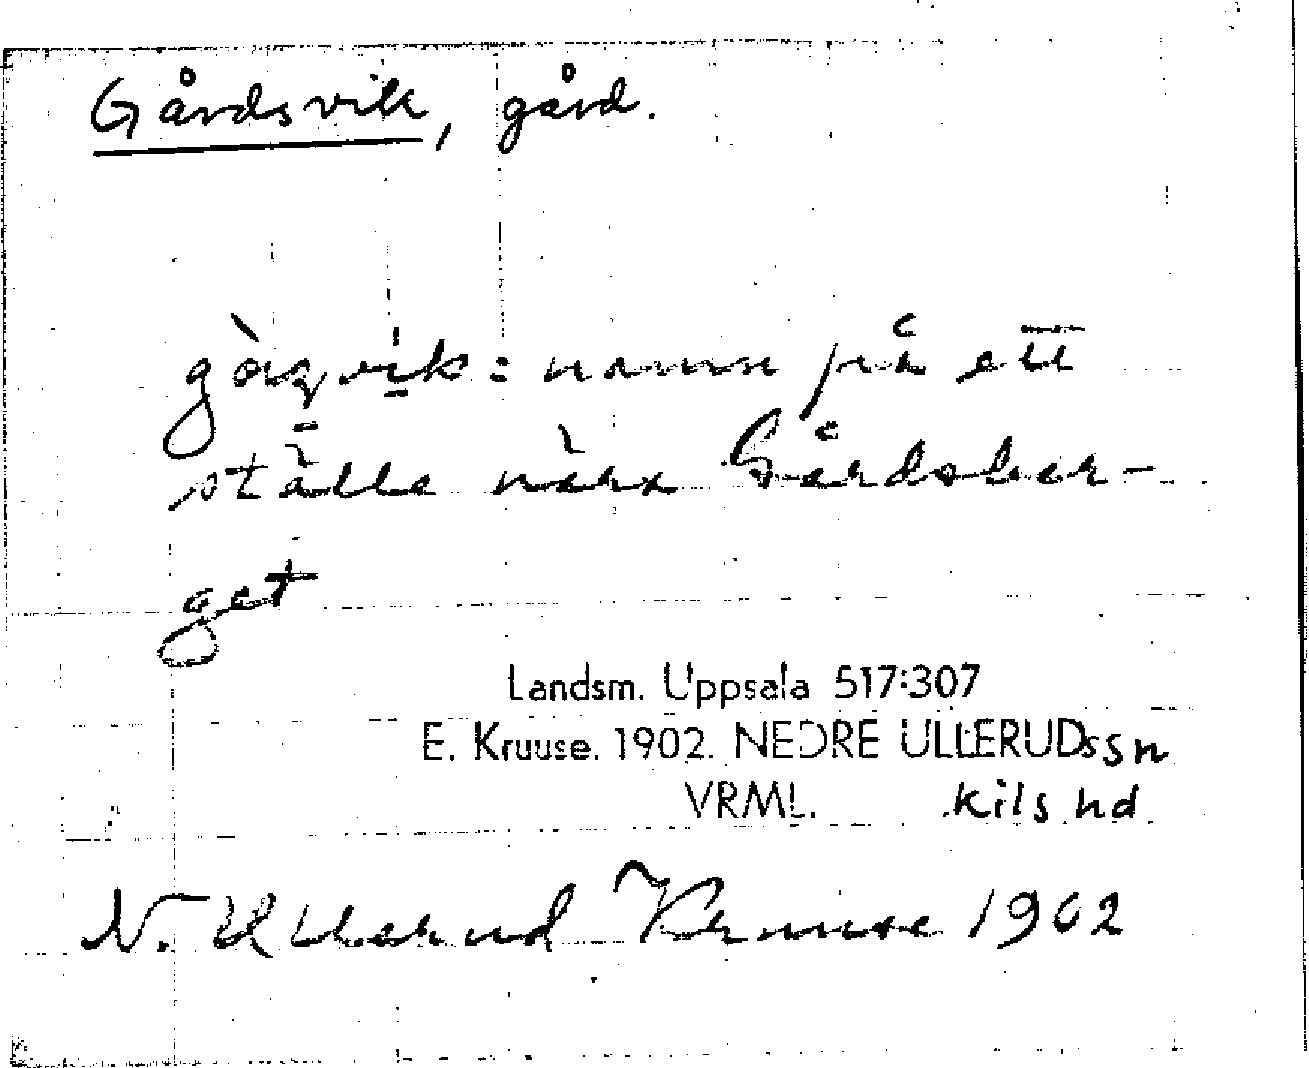 Gårdsvik, gård.
: namn på ett
ställe nära Gårdsber-
get
Landsm. Uppsala 517:307
E. Kruuse. 1902. NEDRE ULLERUDssn
VRML. Kils hd
N. Ullerud Kruuse 1902